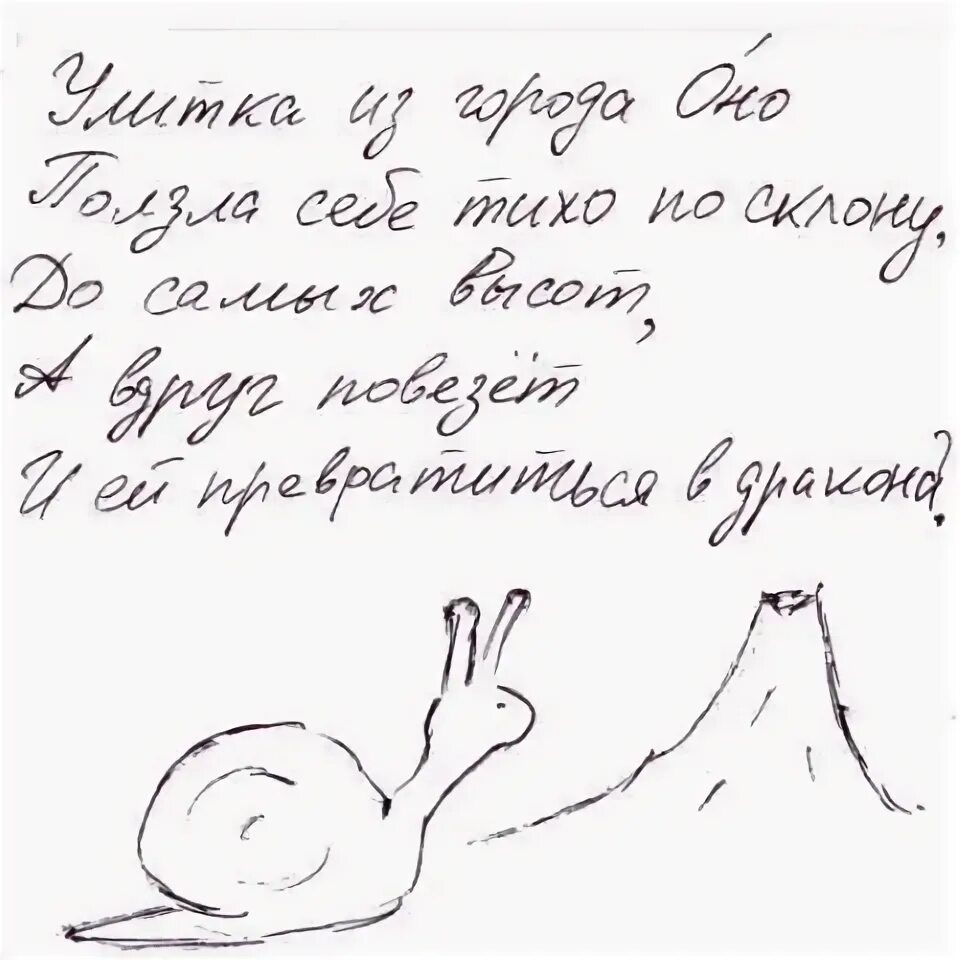 Улитка из города О́но
Ползла себе тихо по склону,
До самых высот,
А вдруг повезёт
И ей превратиться в дракона?